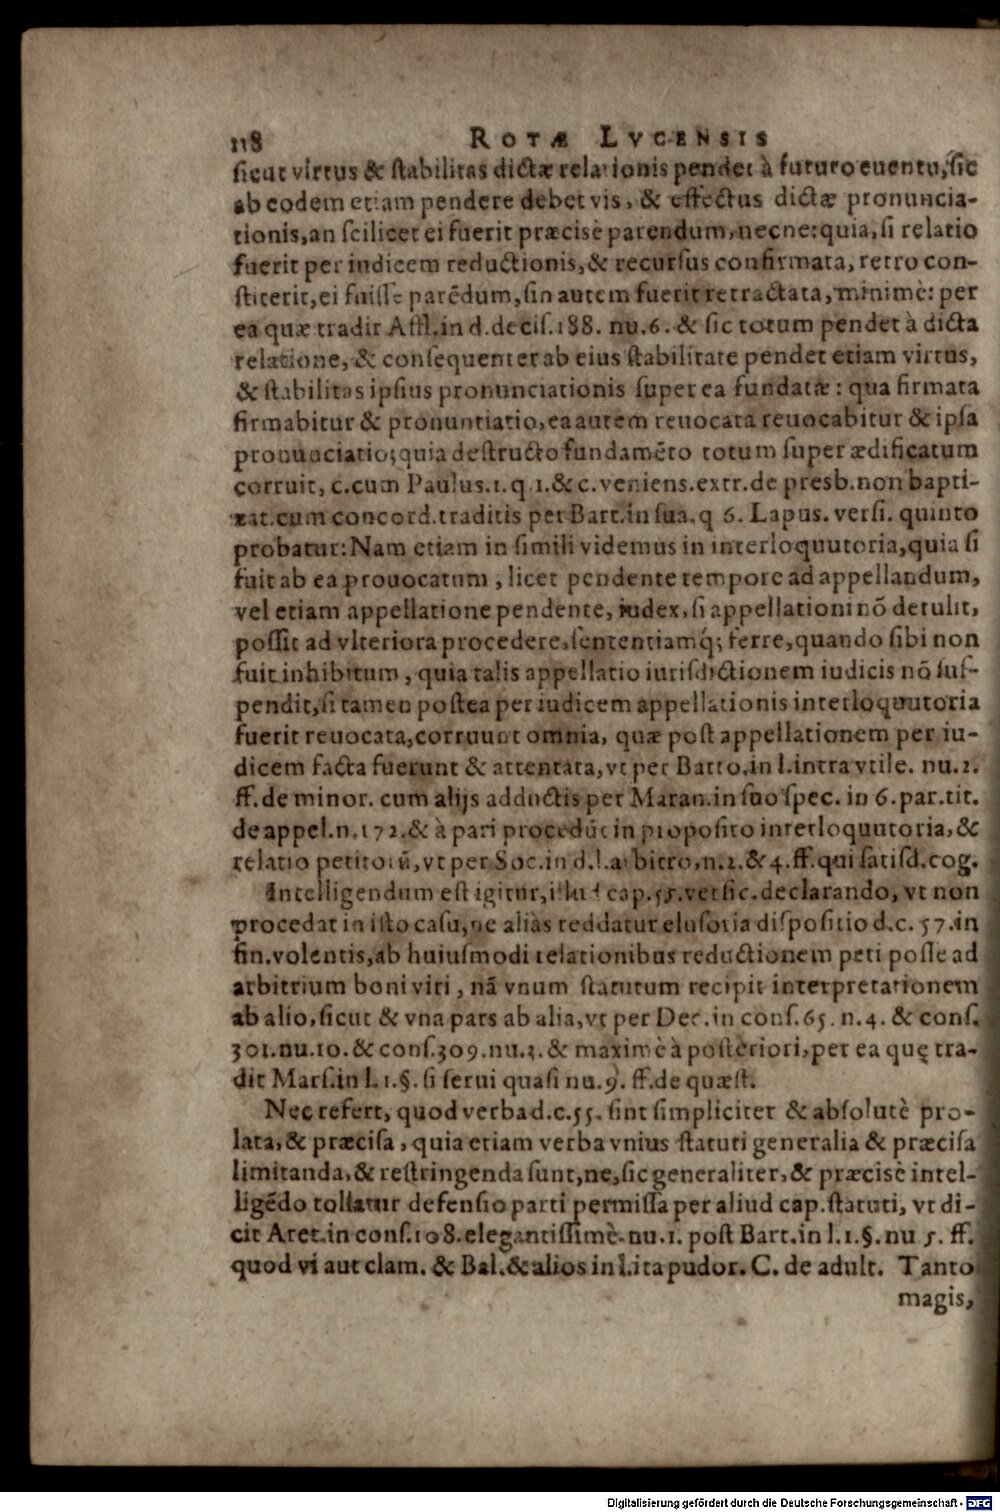 118 ROTÆ LVCENSIS
sicut virtus & stabilitas dictæ relationis pendet à futuro euentu, sic
ab eodem etiam pendere debet vis, & effectus dictæ pronuncia-
tionis, an scilicet ei fuerit præcisè parendum, necne: quia, si relatio
fuerit per iudicem reductionis, & recursus confirmata, retro con-
stiterit, ei fuisse parẽdum, sin autem fuerit retractata, minimè: per
ea quæ tradit Affl. in d. decis. 188. nu. 6. & sic totum pendet à dicta
relatione, & consequenter ab eius stabilitate pendet etiam virtus,
& stabilitas ipsius pronunciationis super ea fundatæ: qua firmata
firmabitur & pronuntiatio, ea autem reuocata reuocabitur & ipsa
pronunciatio; quia destructo fundamẽto totum super ædificatum
corruit, c. cum Paulus. 1. q. 1. & c. veniens. extr. de presb. non bapti-
zat. cum concord. traditis per Bart. in sua. q 6. Lapus. versi. quinto
probatur: Nam etiam in simili videmus in interloquutoria, quia si
fuit ab ea prouocatum, licet pendente tempore ad appellandum,
vel etiam appellatione pendente, iudex, si appellationi nõ detulit,
possit ad vlteriora procedere, sententiamq́; ferre, quando sibi non
fuit inhibitum, quia talis appellatio iurisdictionem iudicis nõ sus-
pendit, si tamen postea per iudicem appellationis interloquutoria
fuerit reuocata, corruunt omnia, quæ post appellationem per iu-
dicem facta fuerunt & attentata, vt per Barto. in l. intra vtile. nu. 2.
ff. de minor. cum alijs adductis per Maran. in suo spec. in 6. par. tit.
de appel. n. 172. & à pari procedũt in proposito interloquutoria, &
relatio petitorũ, vt per Soc. in d. l. arbitro, n. 2. & 4. ff. qui satisd. cog.
Intelligendum est igitur, illud cap. 55. versic. declarando, vt non
procedat in isto casu, ne aliàs reddatur elusoria dispositio d. c. 57. in
fin. volentis, ab huiusmodi relationibus reductionem peti posse ad
arbitrium boni viri, nã vnum statutum recipit interpretationem
ab alio, sicut & vna pars ab alia, vt per Dec. in cons. 65. n. 4. & cons.
301. nu. 10. & cons. 309. nu. 3. & maximè à posteriori, per ea quę tra-
dit Mars. in l. 1. §. si serui quasi nu. 9. ff. de quæst.
Nec refert, quod verba d. c. 55. sint simpliciter & absolutè pro-
lata, & præcisa, quia etiam verba vnius statuti generalia & præcisa
limitanda, & restringenda sunt, ne, sic generaliter, & præcisè intel-
ligẽdo tollatur defensio parti permissa per aliud cap. statuti, vt di-
cit Aret. in cons. 108. elegantissimè. nu. 1. post Bart. in l. 1. §. nu 5. ff.
quod vi aut clam. & Bal. & alios in l. ita pudor. C. de adult. Tanto
magis,
Digitalisierung gefördert durch die Deutsche Forschungsgemeinschaft - DFG